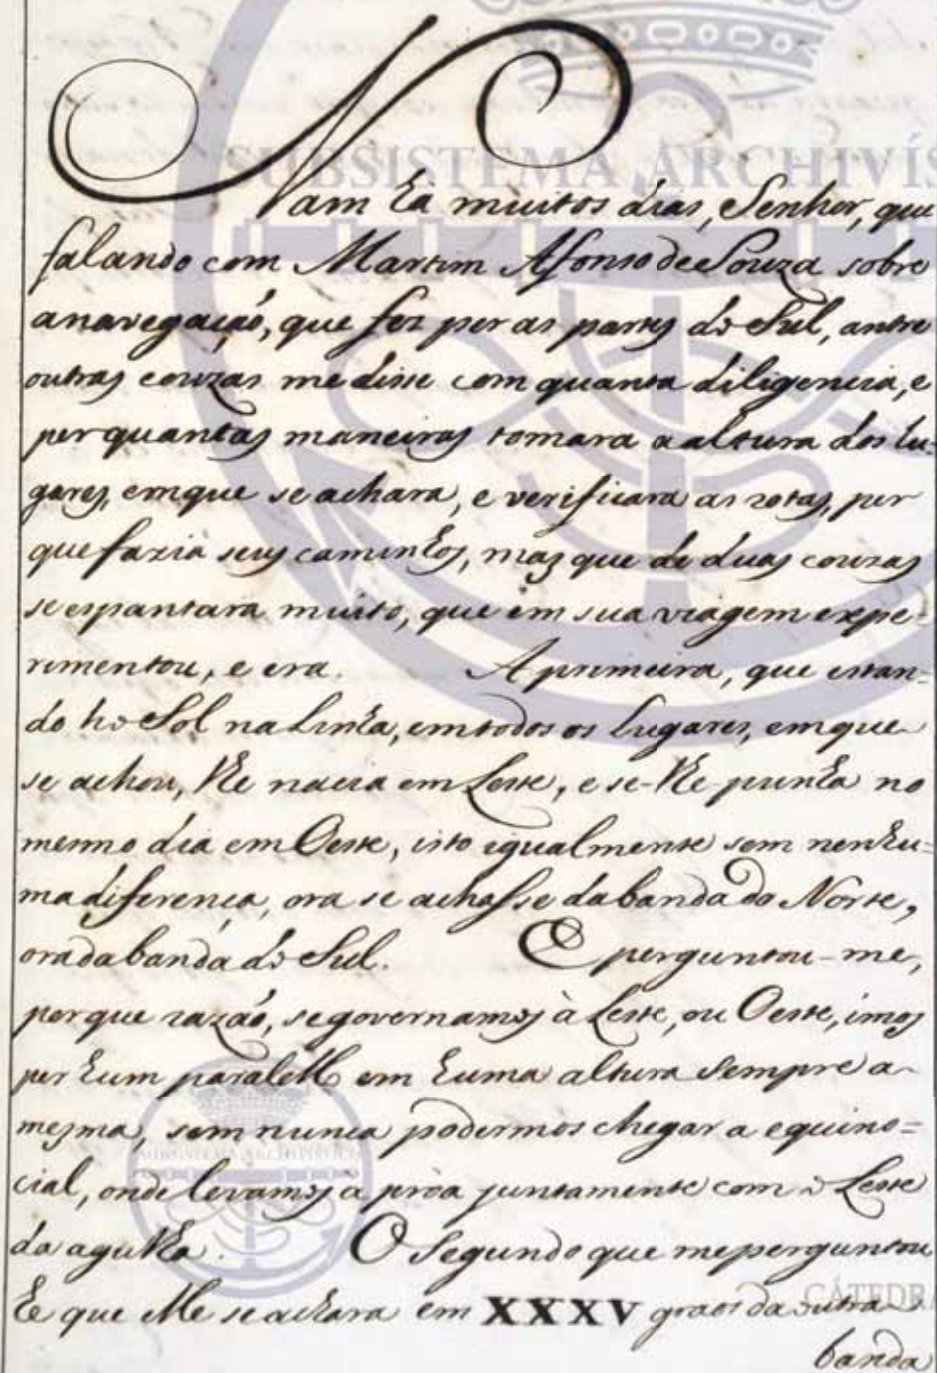 SUBSISTEMA ARCHIVÍS
Nam ha muitos dias, Senhor, que
falando com Martim Afonso de Souza sobre
a navegação, que fez per as partes do Sul, antre
outras couzas me disse com quanta diligencia, e
per quantas maneiras tomara a altura dos lu-
gares, em que se achara, e verificara as rotas, per
que fazia seus caminhos, mas que de duas couzas
se espantara muito, que em sua viagem expe-
rimentou, e era. A primeira, que estan-
do ho Sol na Linha, em todos os lugares, em que
se achou, lhe nacia em Leste, e se-lhe punha no
mesmo dia em Oeste, isto igualmente sem nenhu=
ma diferença, ora se achasse da banda do Norte,
ora da banda do Sul. E perguntou-me,
porque razáo, se governamos à Leste, ou Oeste, imos
per hum paralello em huma altura sempre a
mesma, sem nunca podermos chegar a equino=
cial, onde levamos a próa juntamente com o Leste
da agulha. O segundo que me perguntou
he que elle se achara em XXXV graos da outra
banda
SUBSISTEMA ARCHIVÍSTICO
CÁTEDRA